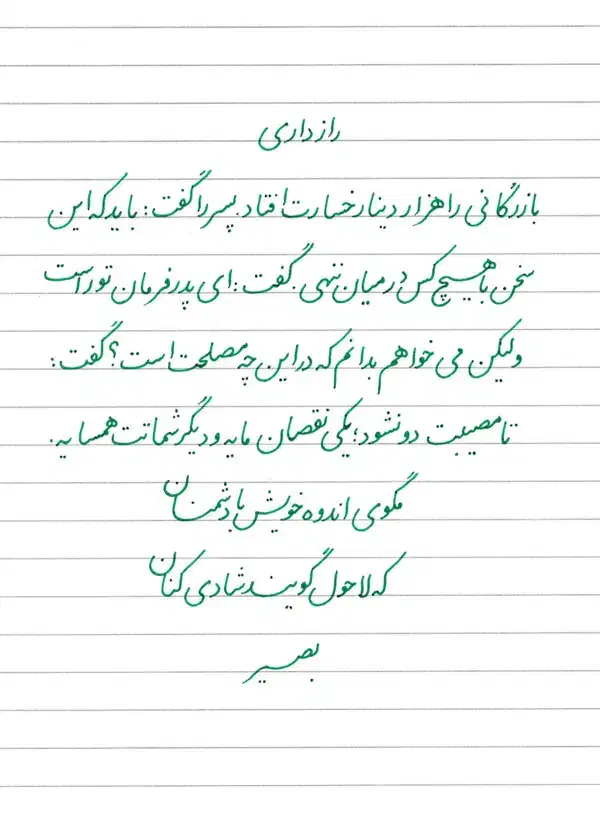 رازداری
بازرگانی را هزار دینار خسارت افتاد. پسر را گفت: باید که این
سخن با هیچ کس در میان ننهی. گفت: ای پدر فرمان تو راست
ولیکن می خواهم بدانم که در این چه مصلحت است؟ گفت:
تا مصیبت دو نشود؛ یکی نقصان مایه و دیگر شماتت همسایه.
مگوی اندوه خویش با دشمنان
که لاحول گویند شادی کنان
بصیر